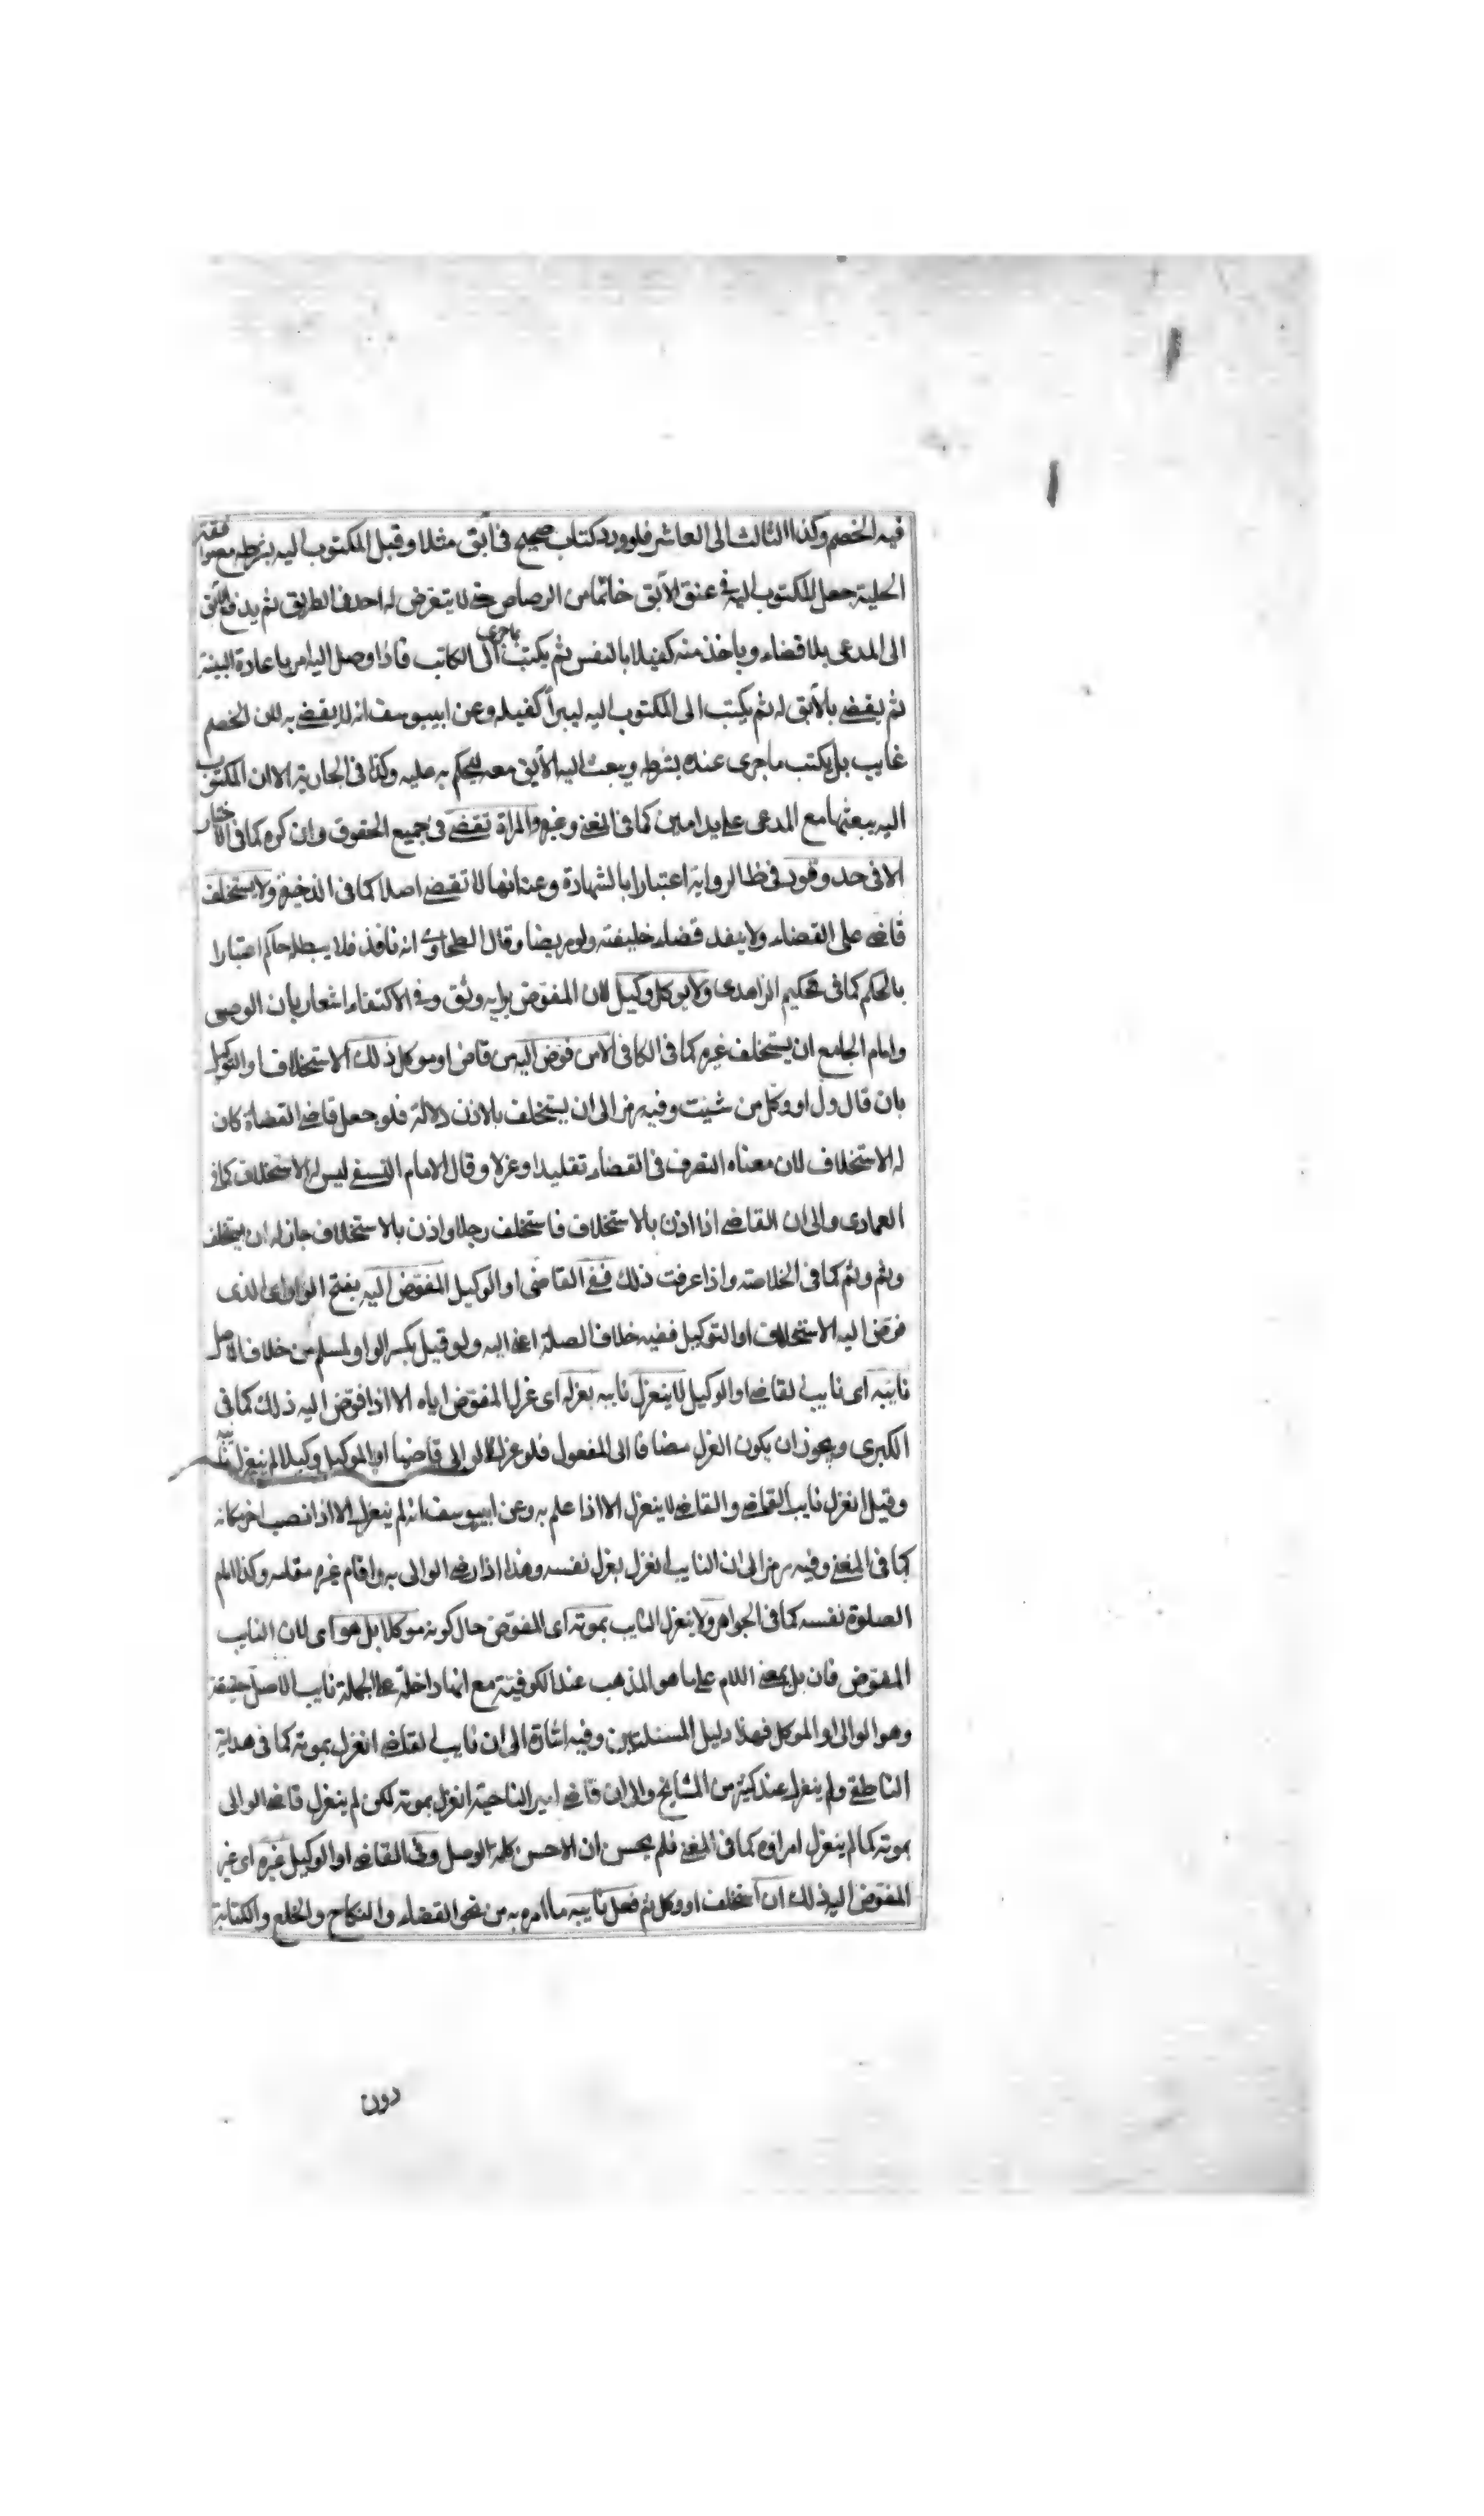 فيه الخصم وكذا الثالث الى العاشر فلو ورد كتاب صحيح فى آبق مثلا وقبل المكتوب اليه بشرطه مع موافقة
الحلية جعل المكتوب اليه فى عنق الآبق خاتما من الرصاص حتى لا يتعرض له احد فى الطريق ثم يدفع الآبق
الى المدعى بلا قضاء وياخذ منه كفيلا بالنفس ثم يكتب ماجرى الى الكاتب فاذا وصل اليه امر باعادة البينة
ثم يقضى بالآبق له ثم يكتب الى المكتوب اليه ليبرأ كفيله وعن ابيوسف انه لا يقضى به لان الخصم
غايب بل يكتب ماجرى عنده بشرطه ويبعث اليه الآبق معه ليحكم به عليه وكذا فى الجارية الا ان المكتوب
اليه يبعثها مع المدعى على يد امين كما فى المغنى وغيره والمراة تقضى فى جميع الحقوق وان كره كما فى الاختيار
الا فى حد وقود فى ظا لرواية اعتبارا بالشهادة وعنه انها لا تقضى اصلا كما فى الذخيرة ولا يستخلف
قاضى على القضاء ولا ينفد قضاء خليفته ولو مريضا وقال الطحاوى انه نافذ فلا يبطله حاكم اعتبارا
بالحكم كما فى تحكيم الزاهدى ولا يوكل وكيل لان المفوض برايه وثق وفى الاكتفاء اشعار بان الوصى
وامام الجامع ان يستخلف غيره كما فى الكافى الا من فوض اليه من قاض او موكل ذلك الاستخلاف او التوكيل
بان قال ول او وكل من شيت وفيه رمز الى ان يستخلف بالاذن دلالة فلو جعل قاضى القضاة كان
له الاستخلاف لان معناه التصرف فى القضاء تقليدا وعزلا وقال الامام النسفى ليس له الاستخلاف كما فى
العمادى والى ان القاضى اذا اذن بالاستخلاف فاستخلف رجلا واذن بالاستخلاف جاز له ان يستخلف
وثم وثم كما فى الخلاصة واذا عرفت ذلك ففى القاضى او الوكيل المفوض اليه بفتح الواو اى الذى
فوض اليه الاستخلاف او التوكيل ففيه خلاف الصلة اعنى اليه ولو قيل بكسر الواو لمسلم من خلاف الاصل
نايبه اى نايب القاضى او الوكيل لا ينعزل نايبه بعزله اى عزل المفوض اياه الا اذا فوض اليه ذلك كما فى
الكبرى ويجوز ان يكون العزل مضافا الى المفعول فلو عزل الوالى قاضيا او الموكل وكيلا لم ينعزل نايبه
وقيل انعزل نايب القاضى والقاضى لا ينعزل الا اذا علم به وعن ابيوسف انه لم ينعزل الا اذا نصب اخر مكانه
كما فى المغنى وفيه رمز الى ان النايب انعزل بعزل نفسه وهذا اذا رضى الوالى به واقام غيره مقامه وكذا امام
الصلوة نفسه كما فى الجواهر ولا ينعزل النايب بموته اى المفوض حال كونه موكلا بل هو اى لان النايب
المفوض فان بل بمعنى اللام على ما هو المذهب عند الكوفية مع انها داخلة على الجملة نايب الاصل حقيقة
وهو الوالى او الموكل فهذا دليل المسئلتين وفيه اشارة الى ان نايب القاضى انعزل بموته كما فى هداية
الناطفى ولم ينعزل عند كثير من المشايخ والى ان قاضى امير الناحية انعزل بموته لكن لم ينعزل قاضى الوالى
بموته كما لم ينعزل امراؤه كما فى المغنى فلم يحسن ان الاحسن كلمة الوصل وفى القاضى او الوكيل غيره اى غير
المفوض اليه ذلك ان استخلف او وكل ثم فعل نايبه ما امره به من نحو القضاء والنكاح والخلع والكتابة
دون